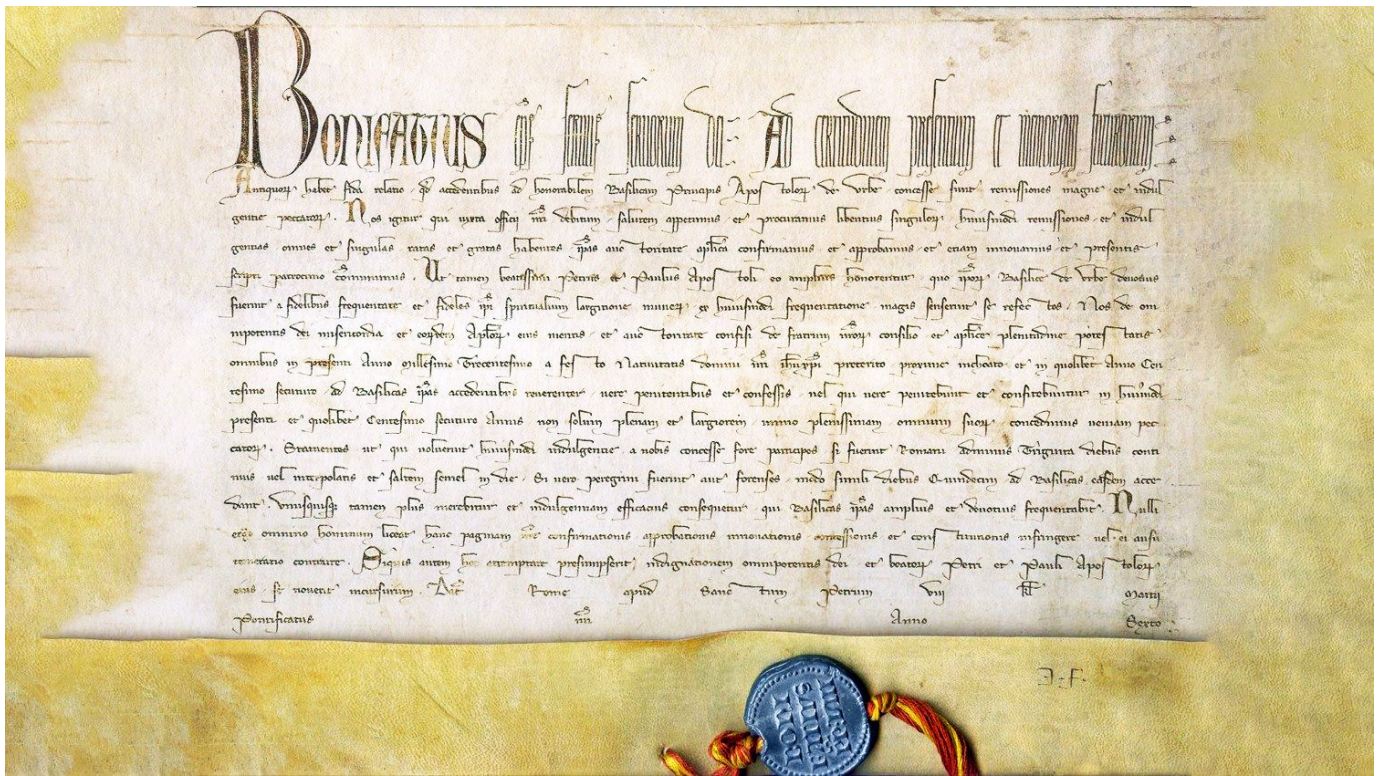 BONIFATIUS ep̄s servus servorum dei Ad certitudinem presentium et memoriam futurorum
Antiquorꝝ habet fida relatio qd̄ accedentibus ad honorabilem Basilicam Principis Apostolorꝝ de Urbe concesse sunt remissiones magne et indul
gentie peccatorꝝ. Nos igitur qui iuxta officii nr̄i debitum salutem appetimus et procuramus libentius singulorꝝ huiusmodi remissiones et indul
gentias omnes et singulas ratas et gratas habentes ip̄as auctoritate apl̄ica confirmamus et approbamus et etiam innovamus et presentis
scripti patrocinio cōmunimus. Ut tamen beatissimi Petrus et Paulus Apostoli eo amplius honorentur quo ip̄orꝝ Basilice de Urbe devotius
fuerint a fidelibus frequentate et fideles ip̄i spiritualium largitione munerꝝ ex huiusmodi frequentatione magis senserint se refectos. Nos de om
nipotentis dei misericordia et eorꝰdem Apl̄orꝝ eius meritis et auctoritate confisi de fratrum nr̄orꝝ consilio et apl̄ice plenitudine potestatis
omnibus in presenti Anno Millesimo Trecentesimo a festo Nativitatis domini nr̄i ih̄uxp̄i preterito proxime inchoato et in quolibet Anno Cen
tesimo secuturo ad Basilicas ip̄as accedentibus reverenter vere penitentibus et confessis vel qui vere penitebunt et confitebuntur in huiusmodi
presenti et quolibet Centesimo secuturo Annis non solum plenam et largiorem immo plenissimam omnium suorꝝ concedimus veniam pec
catorꝝ. Statuentes ut qui voluerint huiusmodi indulgentie a nobis concesse fore participes si fuerint Romani adminus Triginta diebus conti
nuis vel interpolatis et saltem semel in die. Si vero peregrini fuerint aut forenses modo simili diebus Quindecim ad Basilicas easdem acce
dant. Unusquisqꝫ tamen plus merebitur et indulgentiam efficacius consequetur qui Basilicas ip̄as amplius et devotius frequentabit. Nulli
ergo omnino hominum liceat hanc paginam nr̄e confirmationis approbationis innovationis concessionis et constitutionis infringere vel ei ausu
temerario contraire. Siquis autem hoc attemptare presumpserit indignationem omnipotentis dei et beatorꝝ Petri et Pauli Apostolorꝝ
eius se noverit incursurum. Dat̄ Rome apud Sanctum Petrum viii kl̄ Martii
Pontificatus nr̄i Anno Sexto